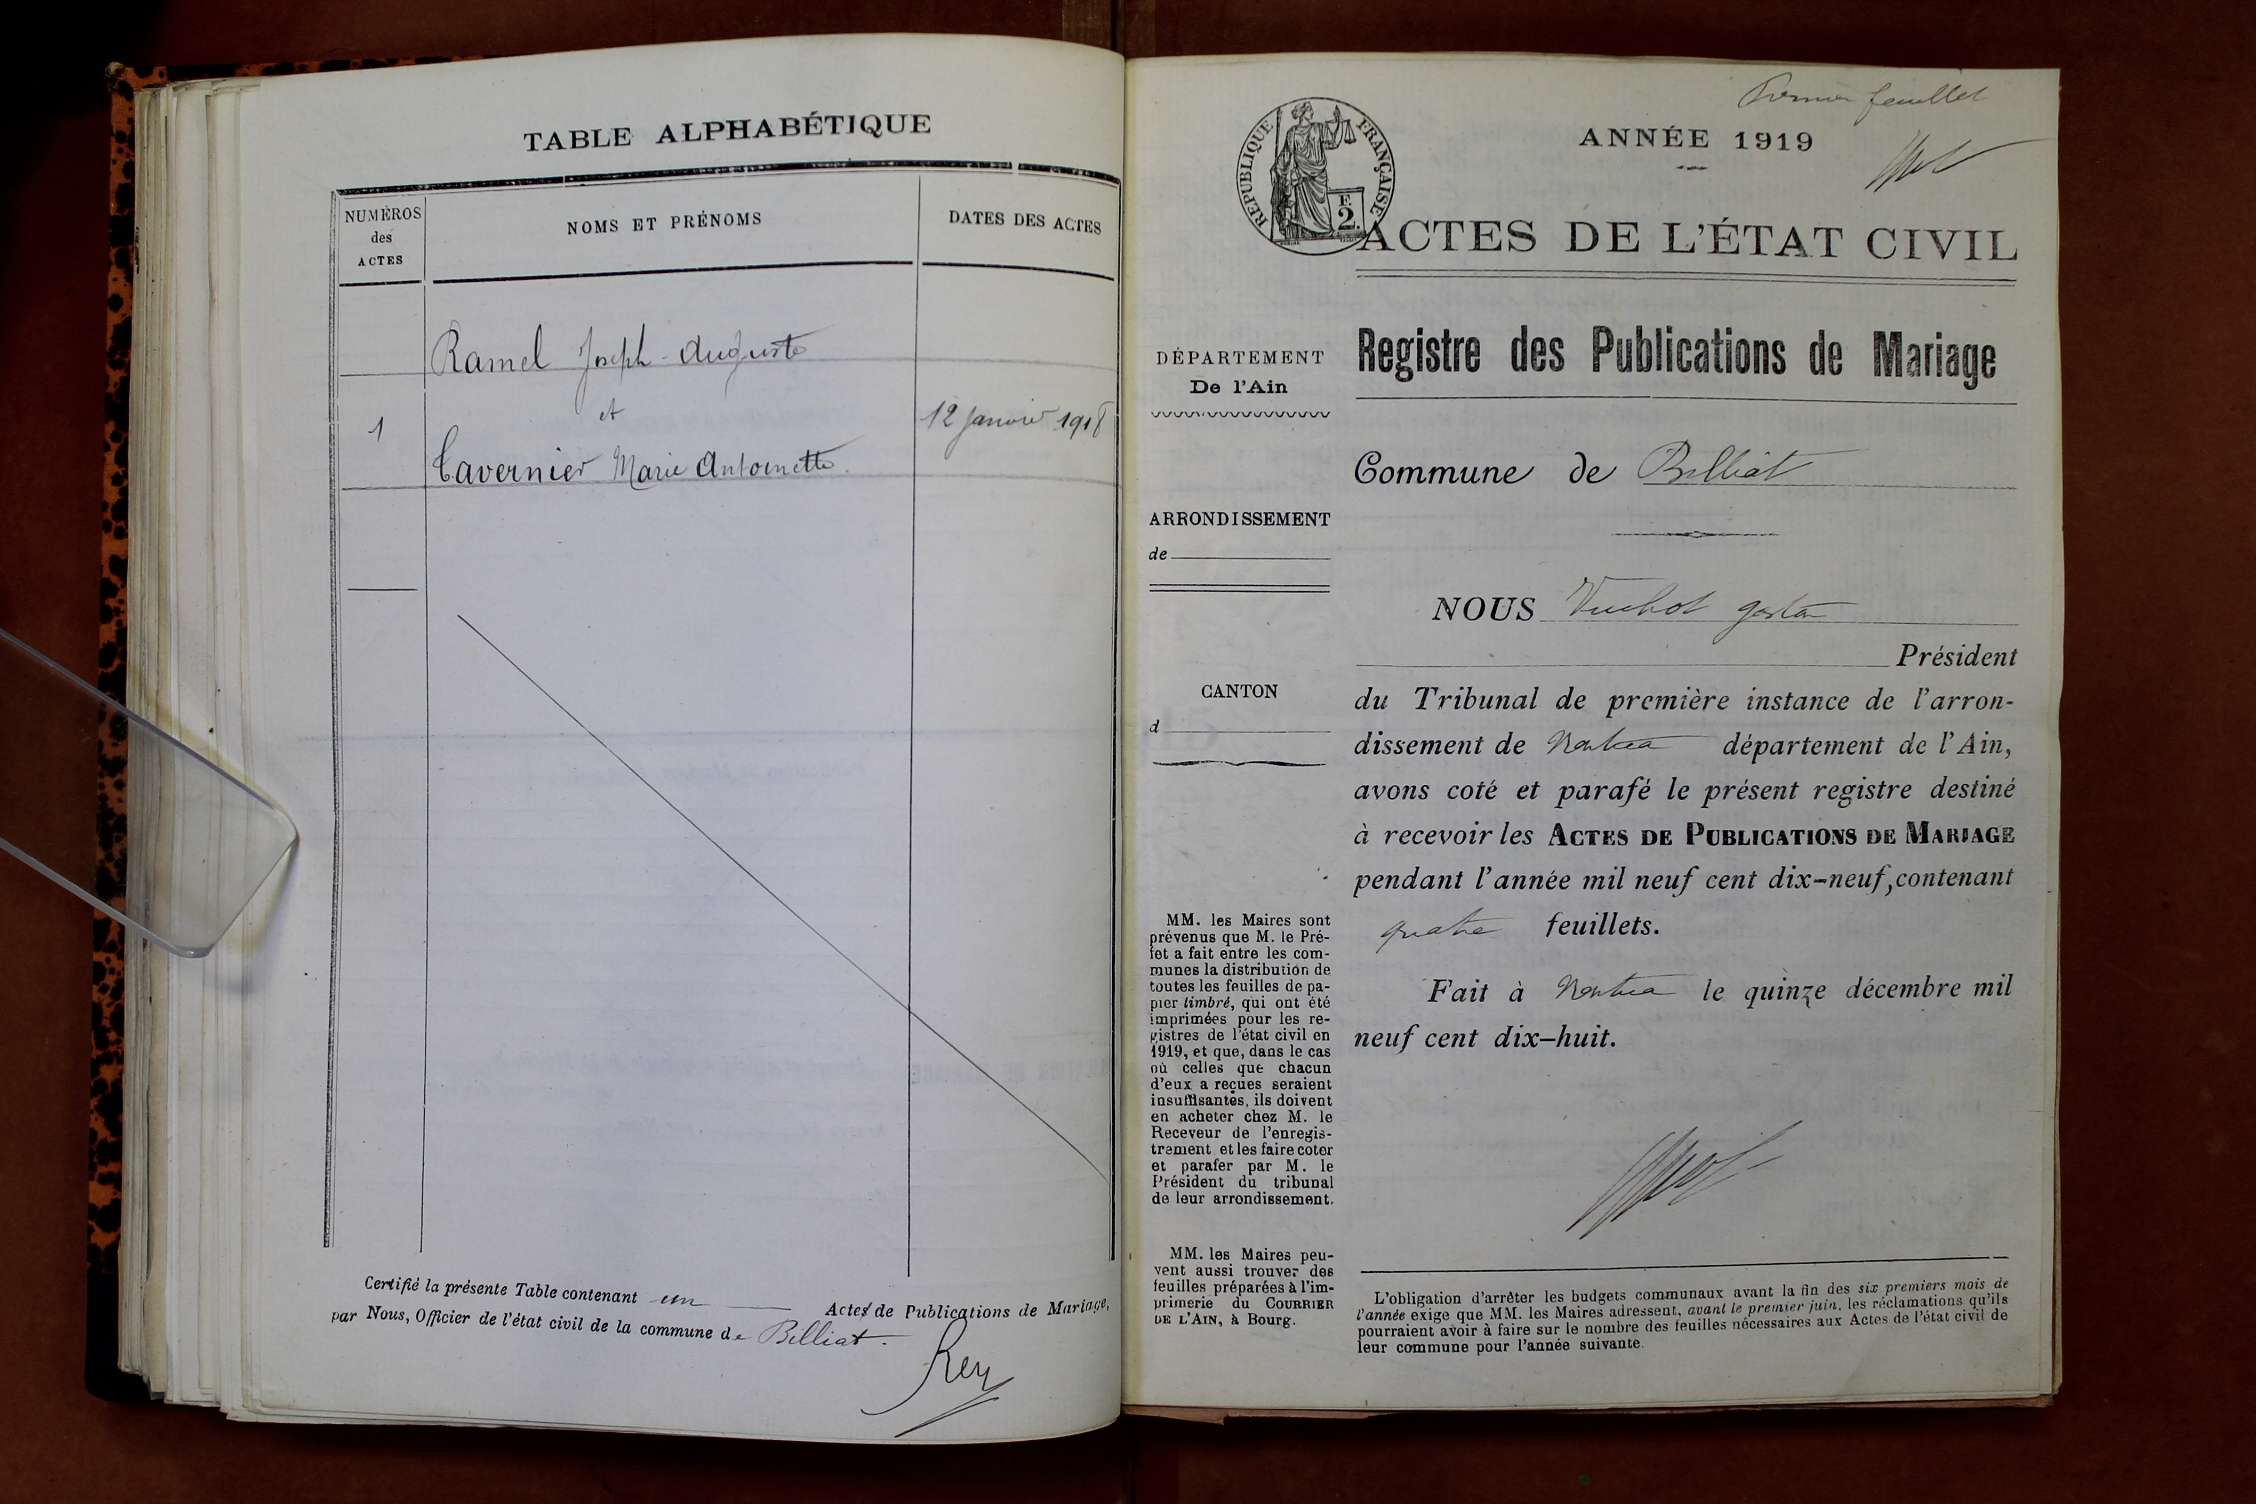 TABLE ALPHABÉTIQUE
NUMÉROS
des
ACTES
NOMS ET PRÉNOMS
DATES DES ACTES
Ramel Joseph-Auguste
et
1
12 Janvier 1918
Tavernier Marie Antoinette.
Certifié la présente Table contenant un Actes de Publications de Mariage,
par Nous, Officier de l'état civil de la commune de Billiat.
Rey
Premier feuillet
ANNÉE 1919
RÉPUBLIQUE FRANÇAISE
F.
2.
ACTES DE L'ÉTAT CIVIL
DÉPARTEMENT
De l'Ain
ARRONDISSEMENT
de
CANTON
d
MM. les Maires sont
prévenus que M. le Pré-
fet a fait entre les com-
munes la distribution de
toutes les feuilles de pa-
pier timbré, qui ont été
imprimées pour les re-
gistres de l'état civil en
1919, et que, dans le cas
où celles que chacun
d'eux a reçues seraient
insuffisantes, ils doivent
en acheter chez M. le
Receveur de l'enregis-
trement et les faire coter
et parafer par M. le
Président du tribunal
de leur arrondissement.
MM. les Maires peu-
vent aussi trouver des
feuilles préparées à l'im-
primerie du COURRIER
DE L'AIN, à Bourg.
Registre des Publications de Mariage
Commune de Billiat
NOUS Gaston
Président
du Tribunal de première instance de l'arron-
dissement de Nantua département de l'Ain,
avons coté et parafé le présent registre destiné
à recevoir les ACTES DE PUBLICATIONS DE MARIAGE
pendant l'année mil neuf cent dix-neuf, contenant
quatre feuillets.
Fait à Nantua le quinze décembre mil
neuf cent dix-huit.
L'obligation d'arrêter les budgets communaux avant la fin des six premiers mois de
l'année exige que MM. les Maires adressent, avant le premier juin, les réclamations qu'ils
pourraient avoir à faire sur le nombre des feuilles nécessaires aux Actes de l'état civil de
leur commune pour l'année suivante.